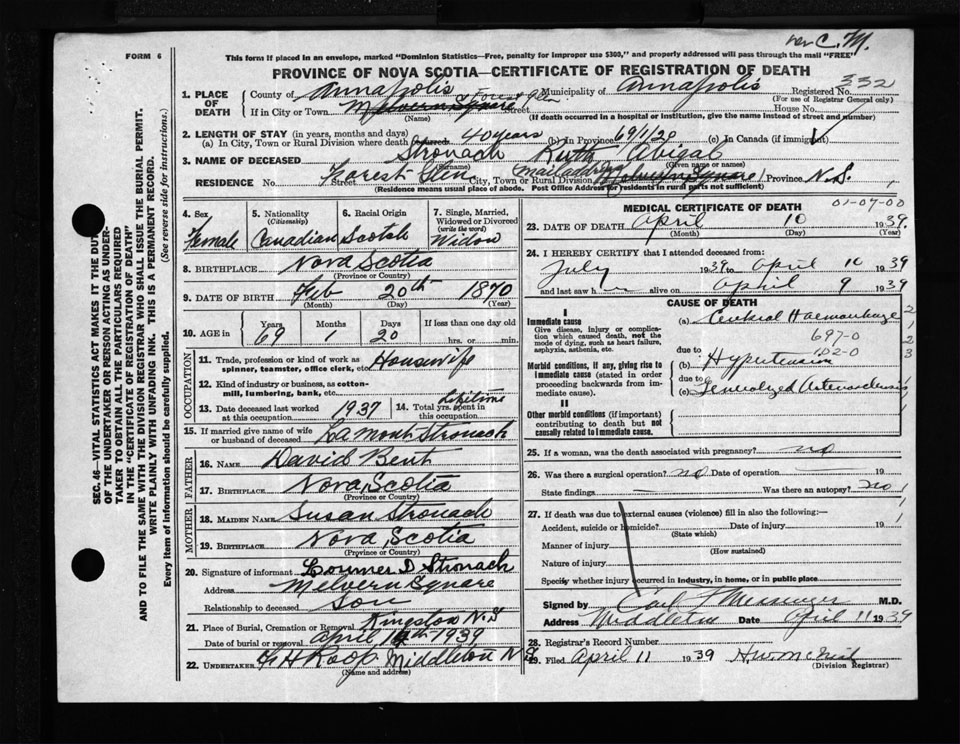 C. M.
FORM 6
This form if placed in an envelope, marked "Dominion Statistics—Free, penalty for improper use $300," and properly addressed will pass through the mail "FREE"
PROVINCE OF NOVA SCOTIA—CERTIFICATE OF REGISTRATION OF DEATH
332
1. PLACE OF DEATH
County of Annapolis Municipality of Annapolis Registered No.
(For use of Registrar General only)
If in City or Town Melvern Square Forest Glen Street House No.
(Name) (If death occurred in a hospital or institution, give the name instead of street and number)
2. LENGTH OF STAY (in years, months and days)
(a) In City, Town or Rural Division where death occurred 40 years (b) In Province 69/1/20 (c) In Canada (if immigrant)
3. NAME OF DECEASED Stronach Ruth Abigal
(Surname) (Given name or names)
RESIDENCE No. Forest Glen Street City, Town or Rural Division mail address Melvern Square Province N.S.
(Residence means usual place of abode. Post Office Address for residents in rural parts not sufficient)
4. Sex Female
5. Nationality (Citizenship) Canadian
6. Racial Origin Scotch
7. Single, Married, Widowed or Divorced (write the word) Widow
8. BIRTHPLACE Nova Scotia
(Province or Country)
9. DATE OF BIRTH Feb 20th 1870
(Month) (Day) (Year)
10. AGE in Years 69 Months 1 Days 20 If less than one day old hrs. or min.
OCCUPATION
11. Trade, profession or kind of work as spinner, teamster, office clerk, etc. Housewife
12. Kind of industry or business, as cotton-mill, lumbering, bank, etc.
13. Date deceased last worked at this occupation 1937
14. Total yrs. spent in this occupation lifetime
15. If married give name of wife or husband of deceased Lamont Stronach
FATHER
16. NAME David Bent
17. BIRTHPLACE Nova Scotia
(Province or Country)
MOTHER
18. MAIDEN NAME Susan Stronach
19. BIRTHPLACE Nova Scotia
(Province or Country)
20. Signature of informant D Stronach
Address Melvern Square
Relationship to deceased Son
21. Place of Burial, Cremation or Removal Kingston N.S
Date of burial or removal April 1939
22. UNDERTAKER H Roop Middleton N S.
(Name and address)
MEDICAL CERTIFICATE OF DEATH 01-07-00
23. DATE OF DEATH April 10 1939.
(Month) (Day) (Year)
24. I HEREBY CERTIFY that I attended deceased from:
July 1939 to April 10 1939
and last saw h alive on April 9 1939
CAUSE OF DEATH
I
Immediate cause
Give disease, injury or complication which caused death, not the mode of dying, such as heart failure, asphyxia, asthenia, etc.
(a) Cerebral Haemorrhage
697-0
102-0
due to
(b) Hypertension
Morbid conditions, if any, giving rise to immediate cause (stated in order proceeding backwards from immediate cause).
due to
(c) Generalized Arteriosclerosis
II
Other morbid conditions (if important) contributing to death but not causally related to immediate cause.
25. If a woman, was the death associated with pregnancy? no
26. Was there a surgical operation? no Date of operation 19
State findings Was there an autopsy? no
27. If death was due to external causes (violence) fill in also the following:—
Accident, suicide or homicide? Date of injury 19
(State which)
Manner of injury
(How sustained)
Nature of injury
Specify whether injury occurred in industry, in home, or in public place
Signed by Carl Messenger M.D.
Address Middleton Date April 11 1939
28. Registrar's Record Number
29. Filed April 11 1939 H.W.
(Division Registrar)
SEC. 46—VITAL STATISTICS ACT MAKES IT THE DUTY OF THE UNDERTAKER OR PERSON ACTING AS UNDERTAKER TO OBTAIN ALL THE PARTICULARS REQUIRED IN THE "CERTIFICATE OF REGISTRATION OF DEATH" AND TO FILE THE SAME WITH THE DIVISION REGISTRAR WHO SHALL ISSUE THE BURIAL PERMIT.
WRITE PLAINLY WITH UNFADING INK. THIS IS A PERMANENT RECORD.
Every item of information should be carefully supplied. (See reverse side for instructions.)